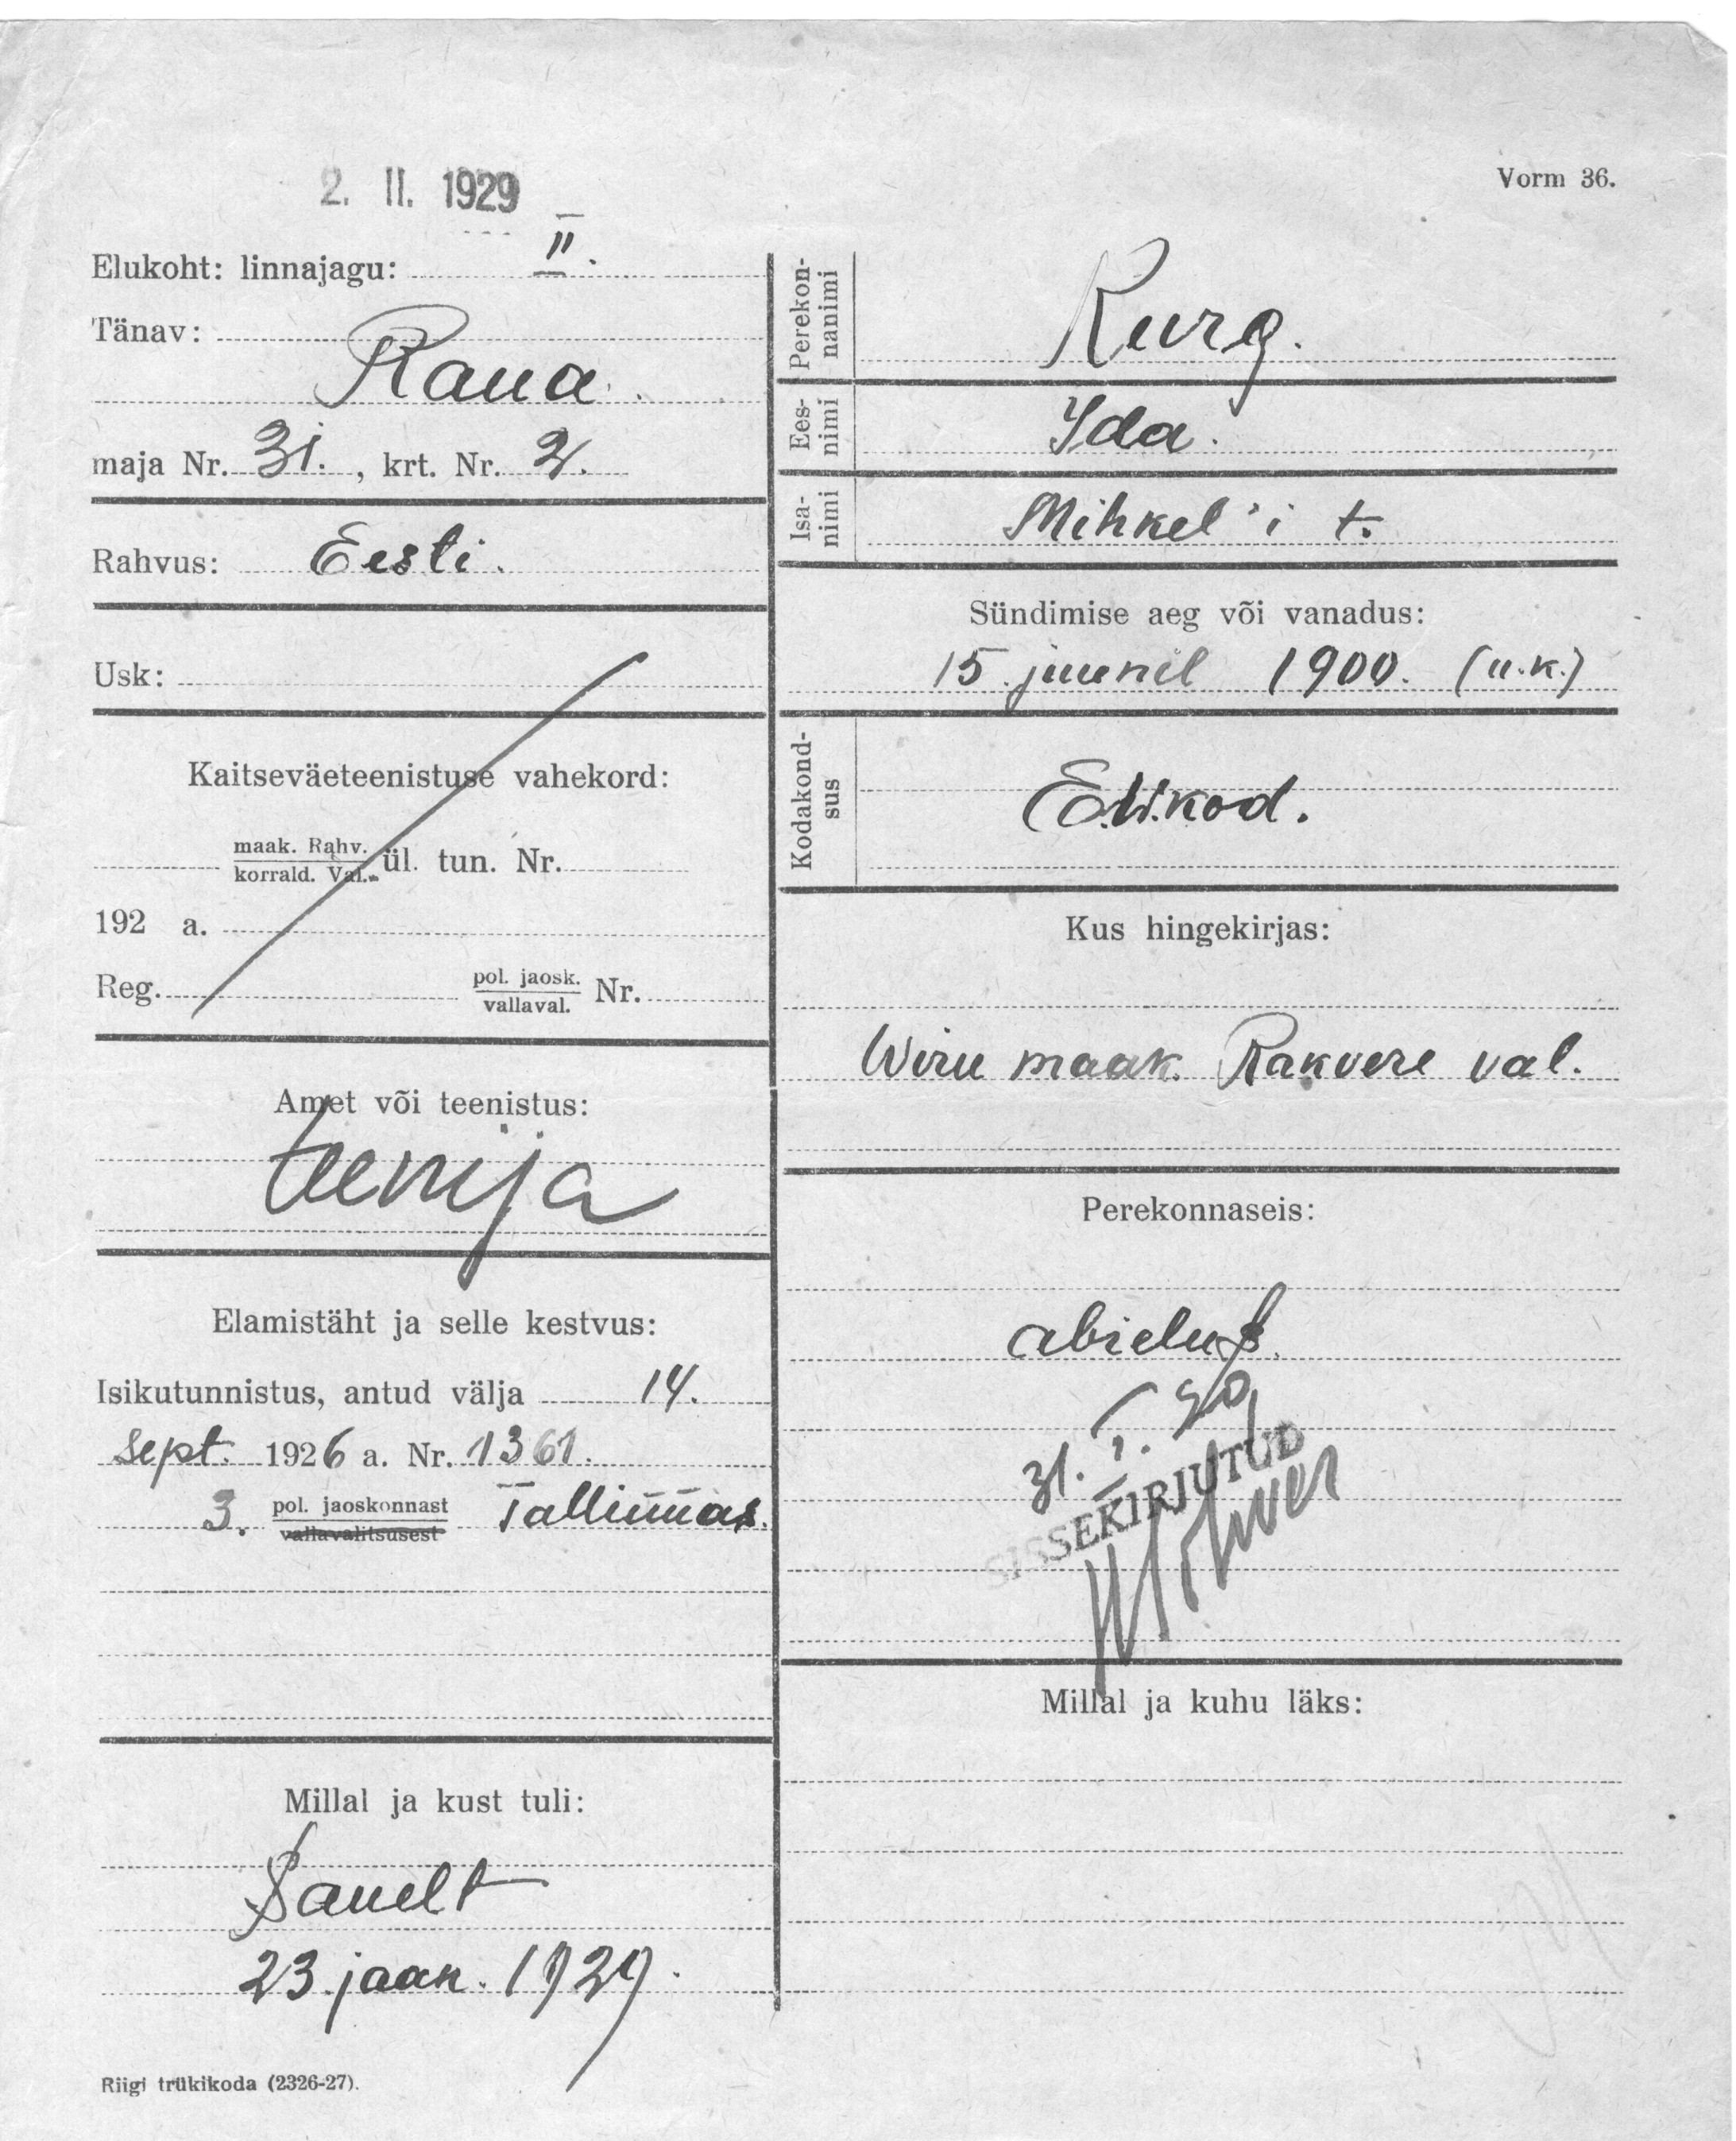 2. II. 1929
Vorm 36.
Elukoht: linnajagu: II.
Tänav:
Raua.
maja Nr. 31., krt. Nr. 2.
Rahvus: Eesti.
Usk:
Kaitseväeteenistuse vahekord:
maak. Rahv.
korrald. Val. ül. tun. Nr.
192 a.
Reg. pol. jaosk.
vallaval. Nr.
Amet või teenistus:
teenija
Elamistäht ja selle kestvus:
Isikutunnistus, antud välja 14.
sept. 1926 a. Nr. 1361.
3. pol. jaoskonnast Tallinnas.
vallavalitsusest
Millal ja kust tuli:
Sauelt
23. jaan. 1929.
Riigi trükikoda (2326-27).
Perekon-
nanimi
Kurg.
Ees-
nimi
Ida.
Isa-
nimi
Mihkel'i t.
Sündimise aeg või vanadus:
15. juunil 1900. (u.k.)
Kodakond-
sus
E.W.kod.
Kus hingekirjas:
Wiru maak. Rakvere val.
Perekonnaseis:
abielus.
31. I. 29
SISSEKIRJUTUD
Millal ja kuhu läks: